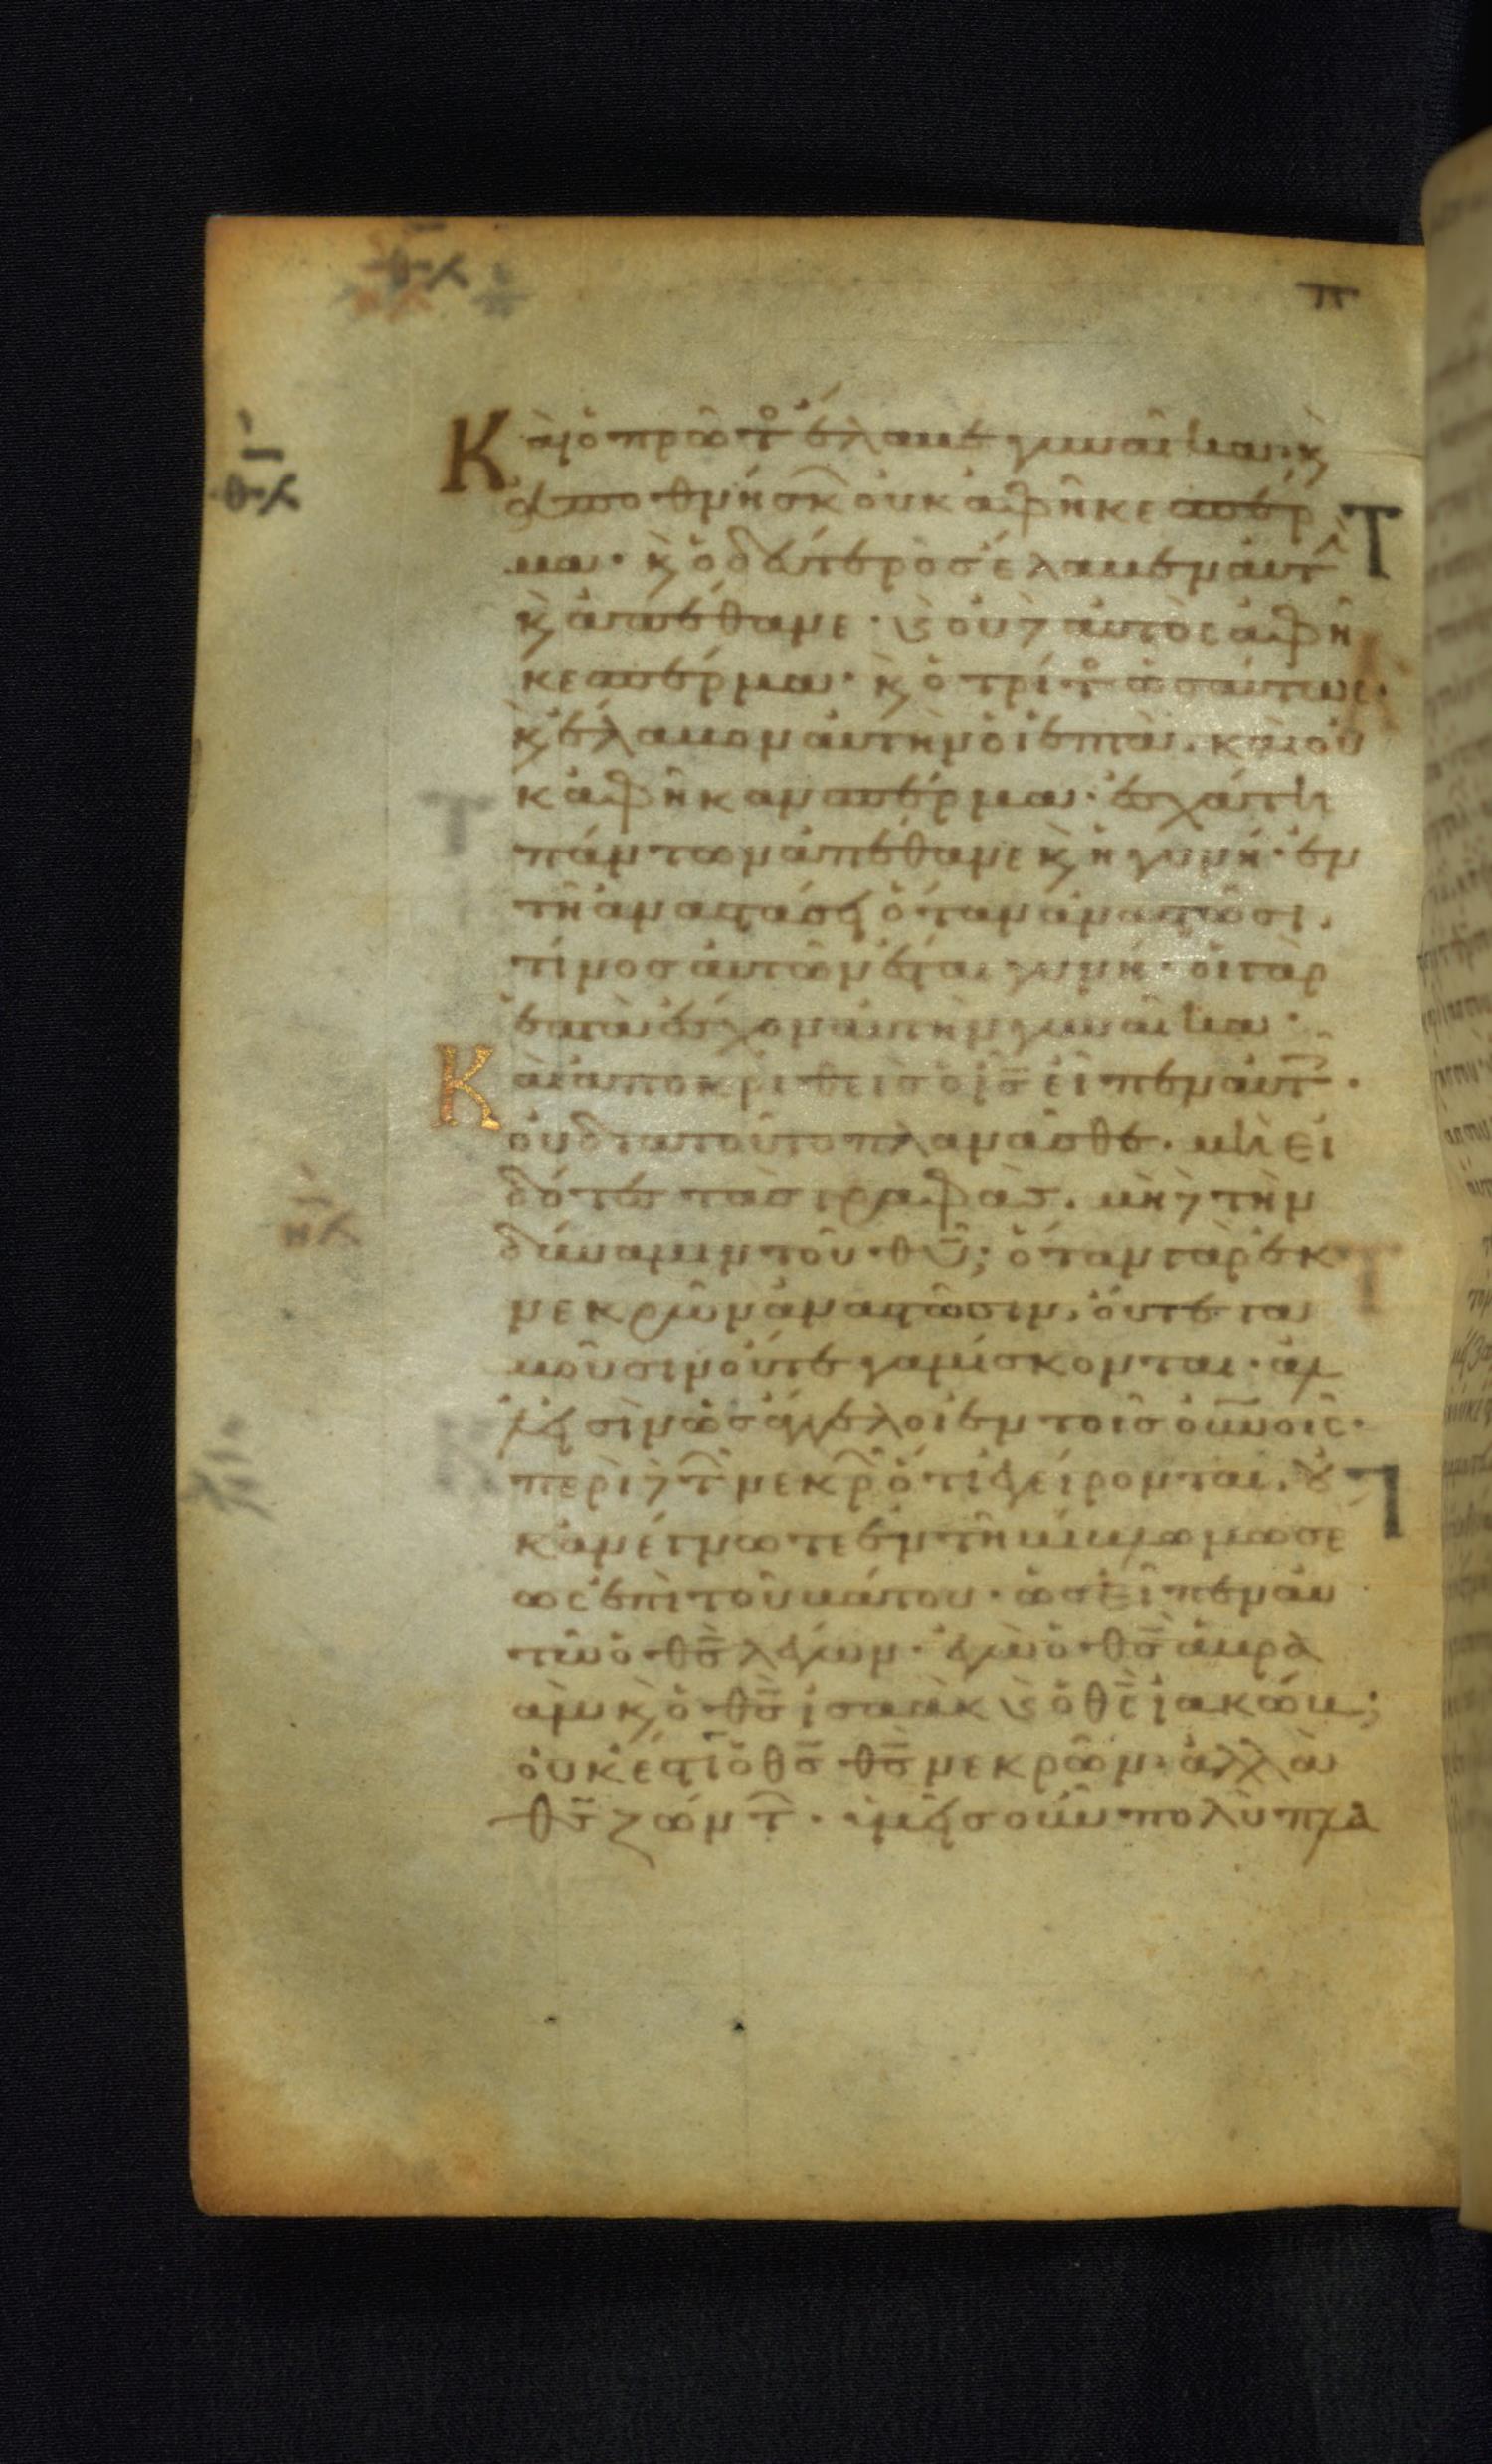 Καὶ ὁ πρῶτο ἔλαβε γυναῖκα· κ
ἀποθνήσκ οὐκ ἀφῆκε σπέρ
μα· κ ὁ δεύτερος ἔλαβεν αὐτ
κ ἀπέθανε· κ οὐδ αὐτὸς ἀφῆ
κε σπέρμα· κ ὁ τρίτο ὡσαύτως·
κ ἔλαβον αὐτὴν οἱ ἑπτὰ. καὶ οὐ
κ ἀφῆκαν σπέρμα· ἐσχάτη
πάντων ἀπέθανε κ ἡ γυνή· ἐν
τῇ ἀναστάσει ὅταν ἀναστῶσι.
τίνος αὐτῶν ἔσται γυνή· οἱ γὰρ
ἑπτὰ ἔσχον αὐτὴν γυναῖκα·
Καὶ ἀποκριθεὶς ὁ ις εἶπεν αὐτ·
οὐ διατοῦτο πλανᾶσθε. μὴ εἰ
δότες τὰς γραφὰς. μὴ δ τὴν
δύναμιν τοῦ θυ; ὅταν γὰρ ἐκ
νεκρῶν ἀναστῶσιν. οὔτε γα
μοῦσιν οὔτε γαμίσκονται· ἀλ
λ εἰσὶν ὡς ἄγγελοι ἐν τοῖς ουνοις·
περὶ δ τ νεκρ ὅτι ἐγείρονται. οὐ
κ ἀνέγνωτε ἐν τῇ βίβλω μωσέ
ως ἐπὶ τοῦ βάτου· ὡς εἶπεν αὐ
τῶ ὁ θς λέγων· ἐγὼ ὁ θς ἀβρα
ὰμ κ ὁ θς ἰσαὰκ κ ὁ θς ἰακώβ;
οὐκ ἔστιν ὁ θς θς νεκρῶν· ἀλλὰ
θς ζώντ· ὑμεῖς οὖν πολὺ πλα